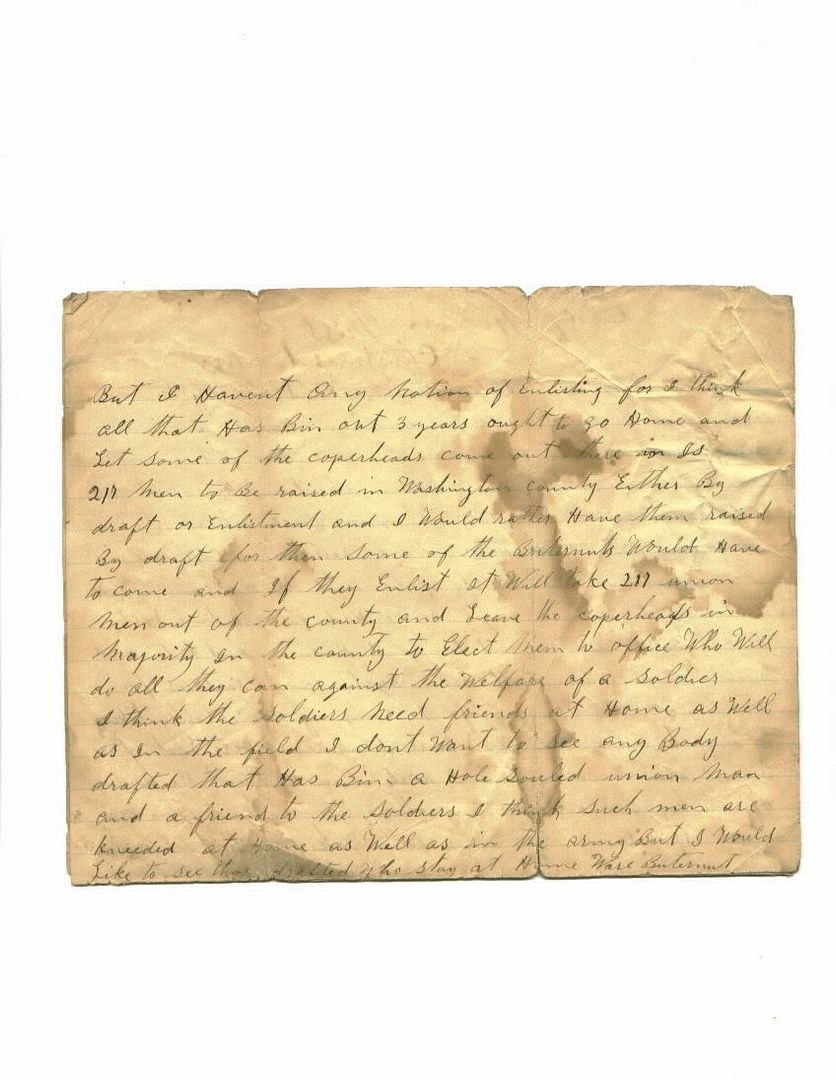 But I Havent Any Notion of Enlisting for I think
all that Has Bin out 3 years ought to go Home and
Let some of the coperheads come out there in Is
217 Men to Be raised in Washington county Either By
draft or Enlistment and I Would rather Have them raised
By draft for then some of the Buternuts Would Have
to come and If they Enlist It Will take 217 union
Men out of the county and Leave the coperheads in
Majority In the county to Elect Men to office Who Will
do all they can against the Welfare of a soldier
I think the soldiers Need friends at Home as Well
as In the field I dont Want to see any Body
drafted that Has Bin a Hole souled union Man
and a friend to the soldiers I think such men are
kneeded at Home as Well as in the army But I Would
Like to see those drafted Who stay at Home Ware Buternut